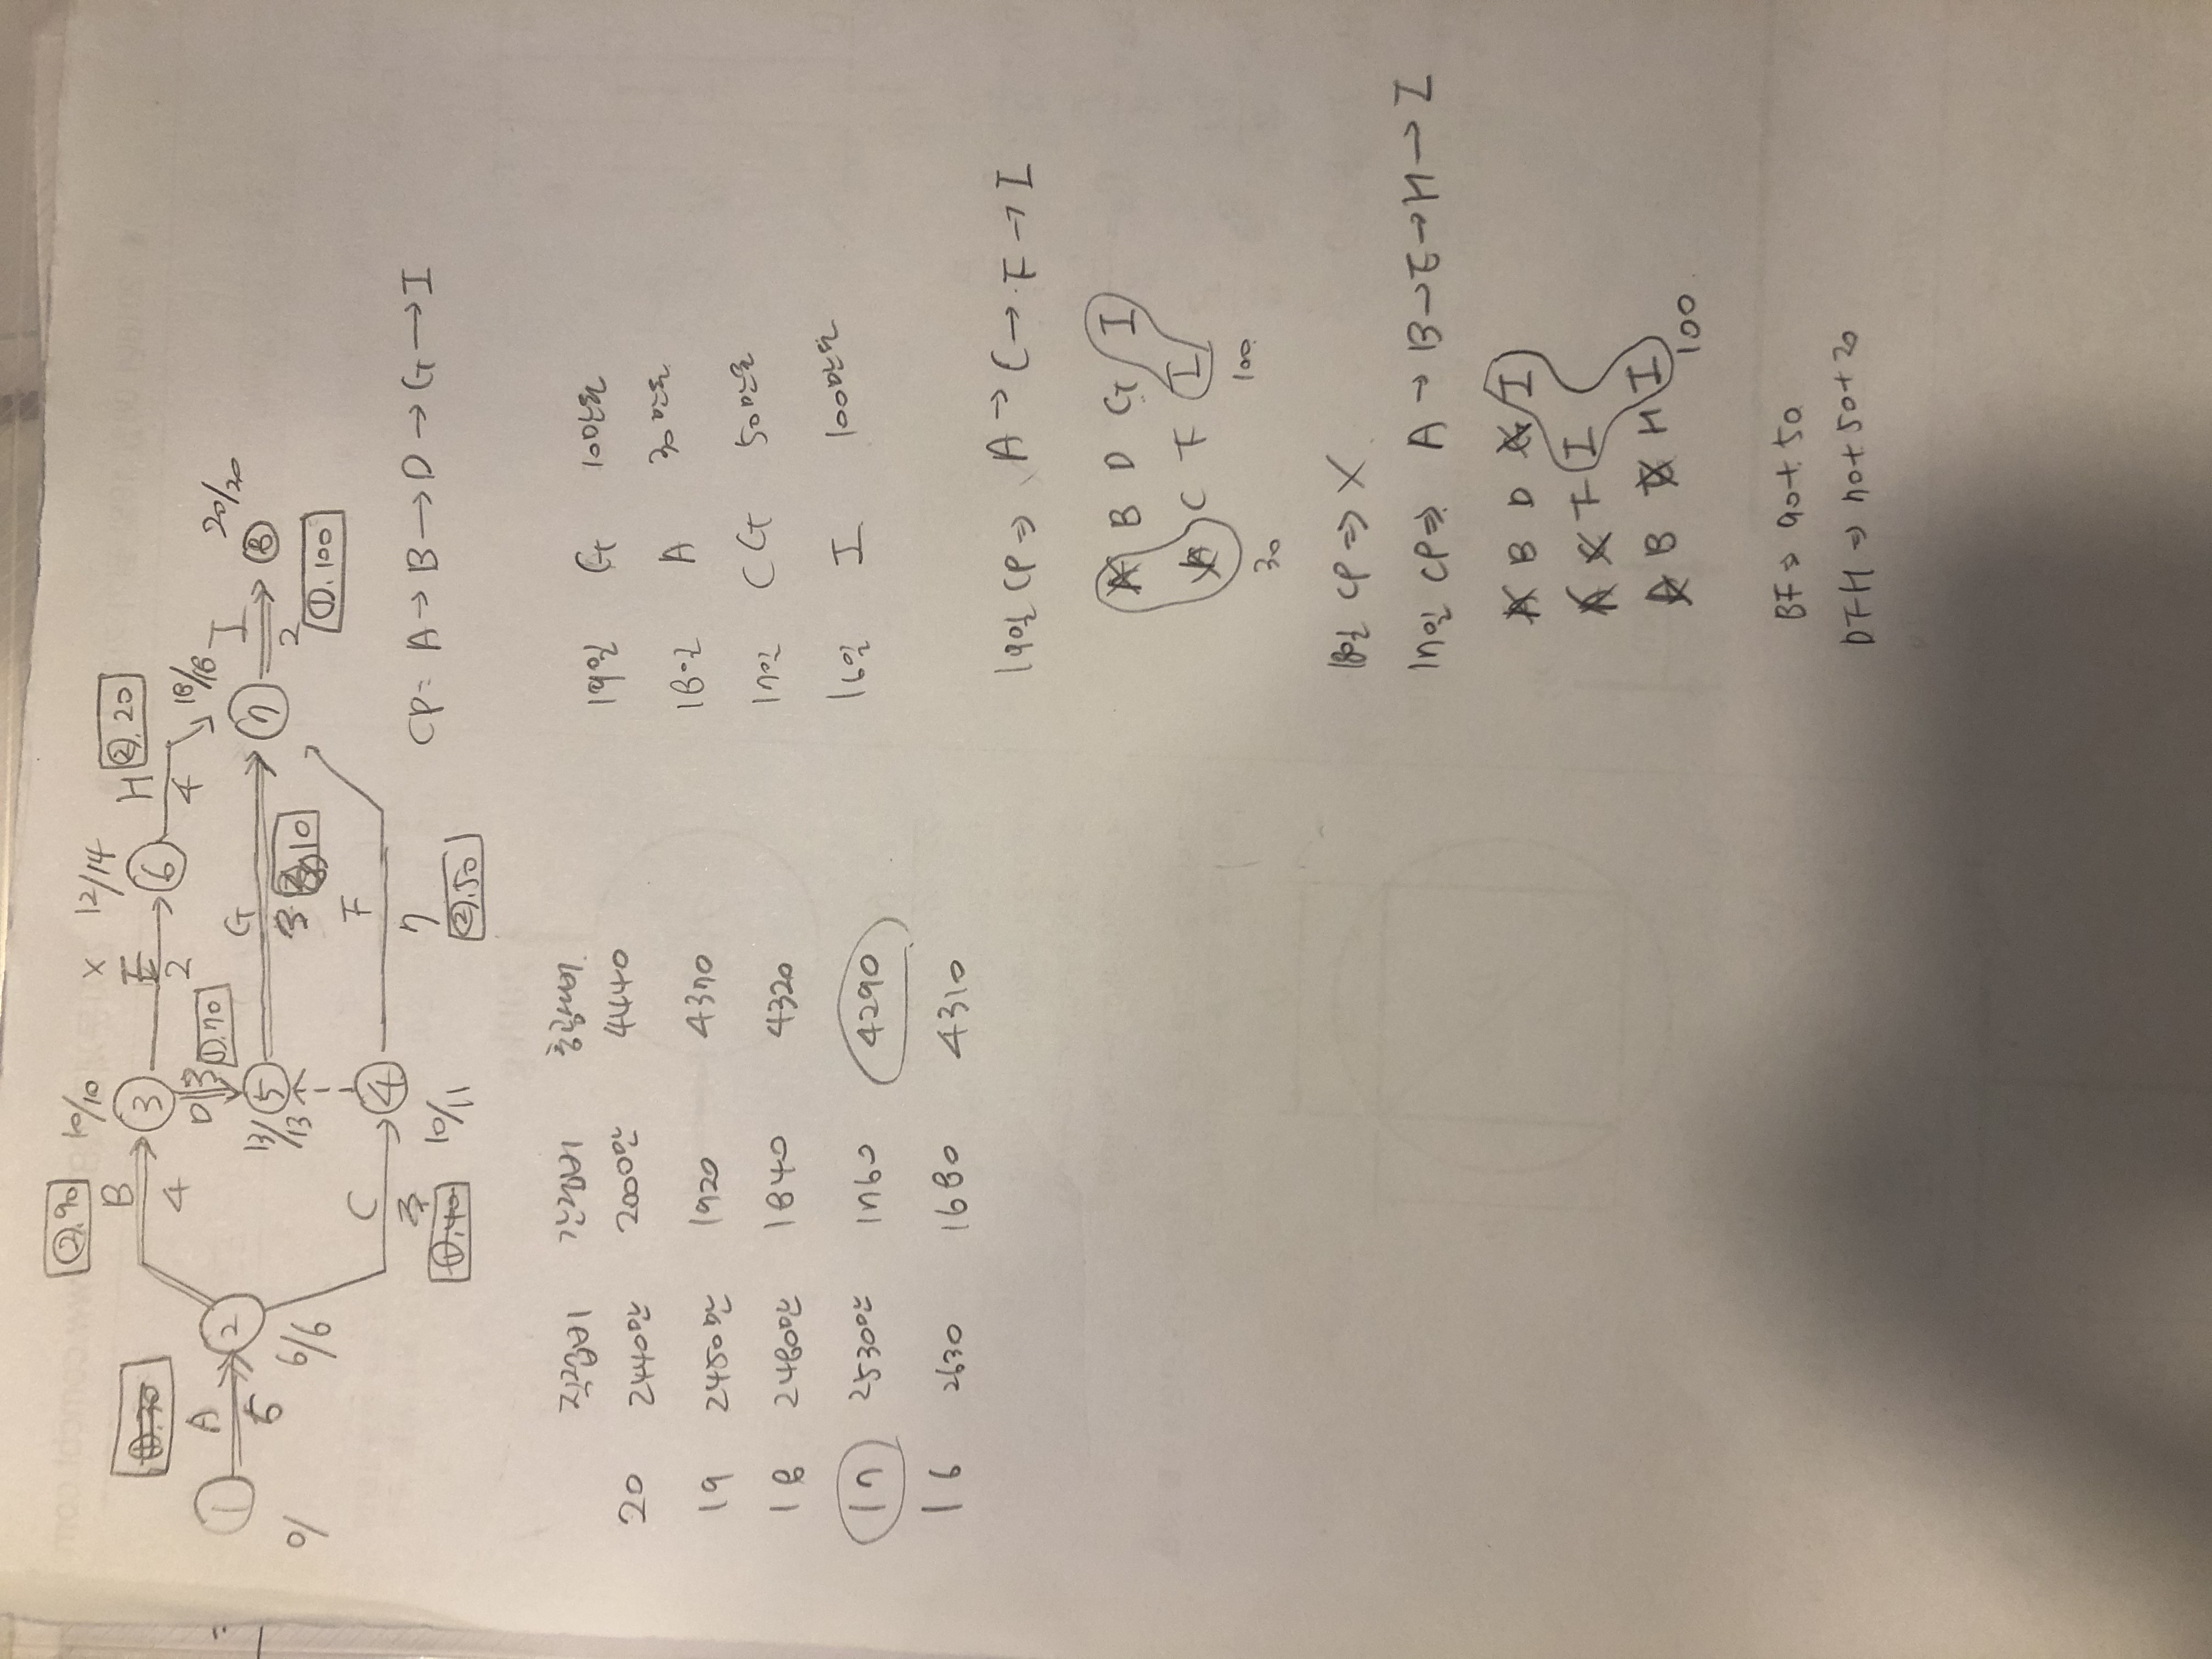 ②.90 10/10 X 12/14 H ②.20
B E 18/18
4 3 2 6 4 20/20
A D 3 ①.70 G I
1 2 5 7 8
5 13/13 3 10 2
0/ 6/6 ①.100
C F
4
3 7
①.40 10/11 ②.50
CP= A→B→D→G→I
직접비 간접비 총공사비
20 2440만 2000만 4440
19 2450만 1920 4370
18 2480만 1840 4320
17 2530만 1760 4290
16 2630 1680 4310
19일 G 10만원
18일 A 30만원
17일 CG 50만원
16일 I 100만원
19일 CP⇒ A→C→F→I
A B D G I
A C F I
30 100
18일 CP⇒X
17일 CP⇒ A→B→E→H→I
A B D G I
A C F I
A B E H I
100
BF⇒90+50
DFH⇒70+50+20